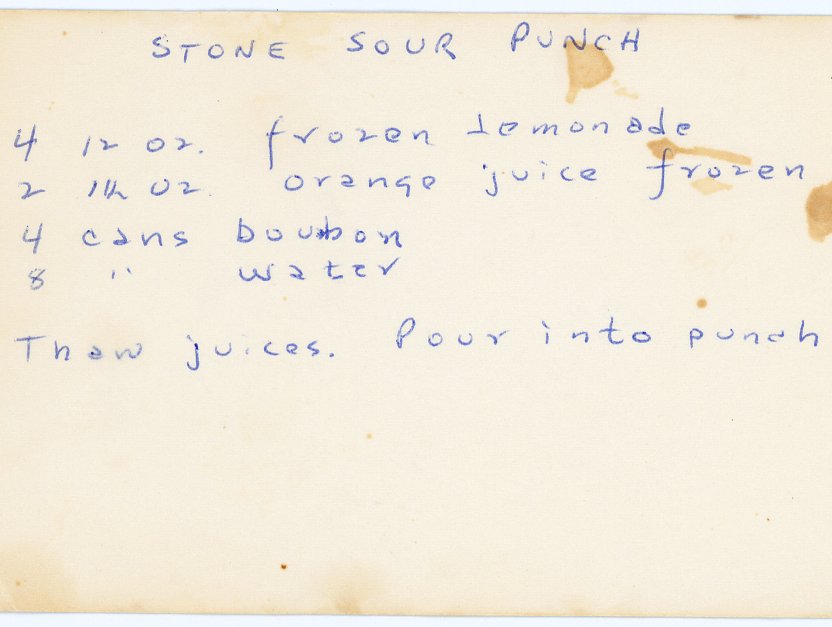 STONE SOUR PUNCH
4 12 oz. frozen lemonade
2 12 oz. orange juice frozen
4 cans boubon
8 " water
Thaw juices. Pour into punch